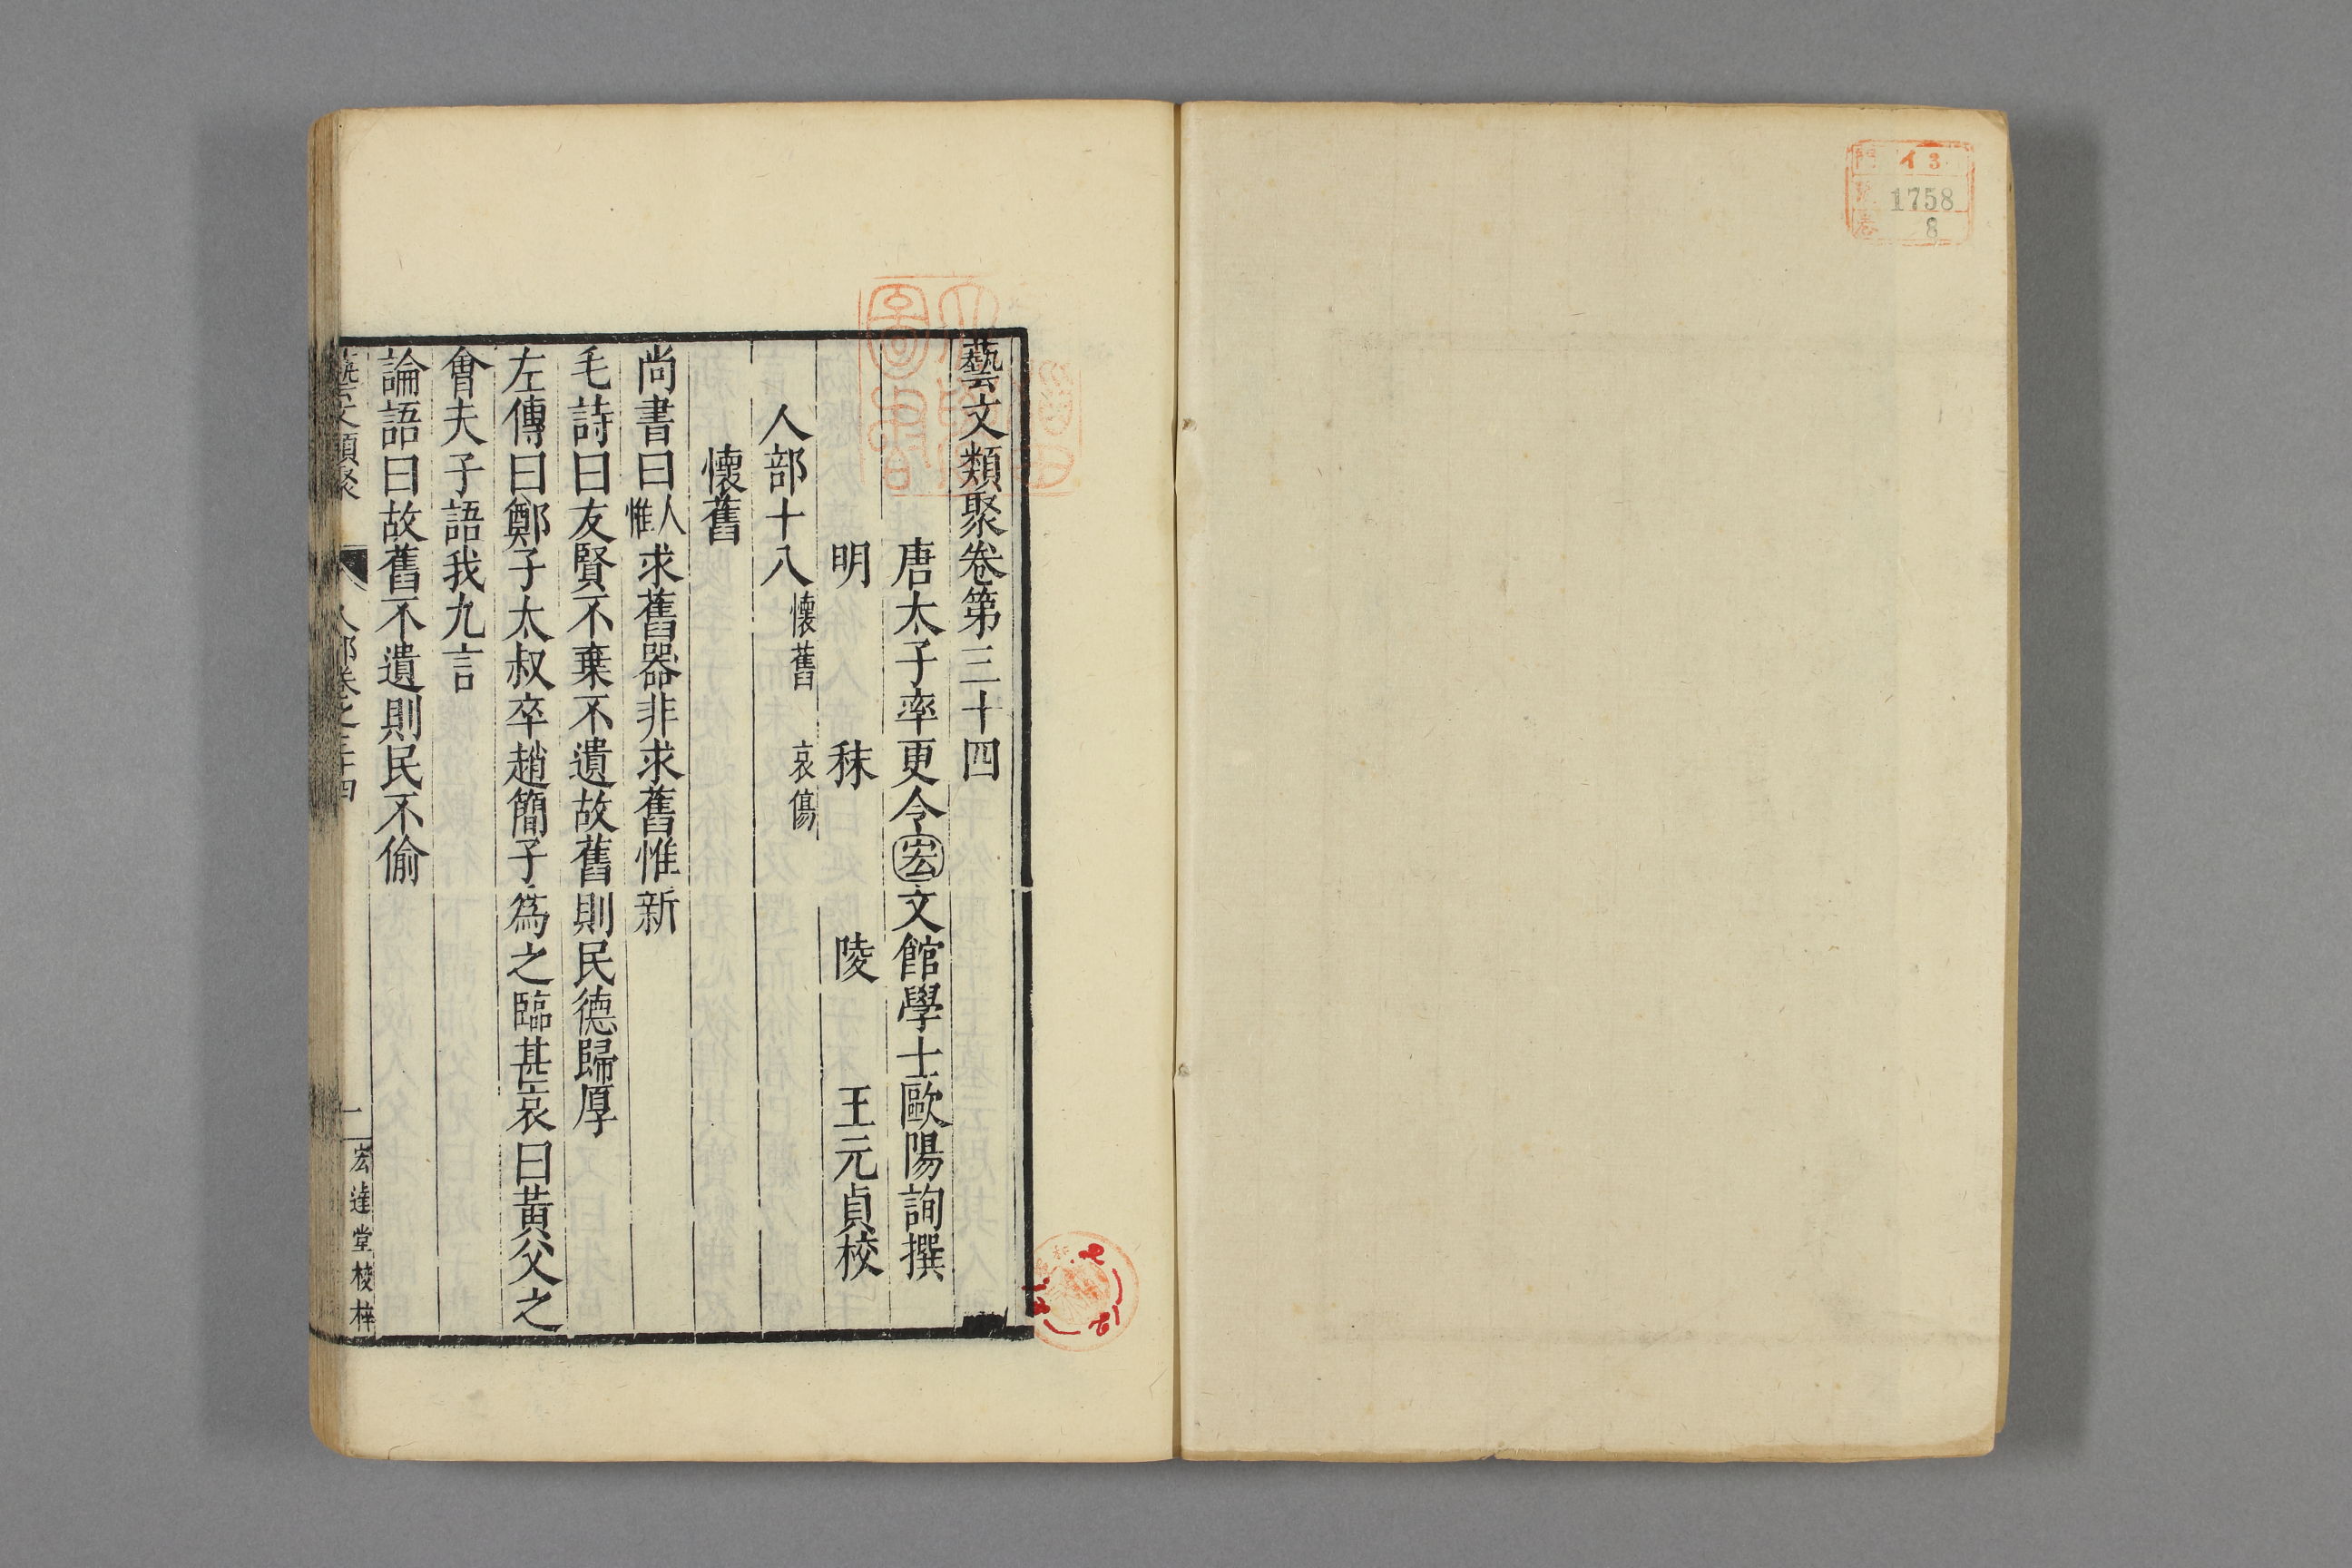 イ3
1758
8
藝文類聚卷第三十四
唐太子率更令宏文館學士歐陽詢撰
明　秣　陵　王元貞校
人部十八 懷舊 哀傷
懷舊
尚書曰人惟求舊器非求舊惟新
毛詩曰友賢不棄不遺故舊則民德歸厚
左傳曰鄭子太叔卒趙簡子爲之臨甚哀曰黃父之
會夫子語我九言
論語曰故舊不遺則民不偷
藝文類聚 人部卷之三十四 一 宏達堂校梓